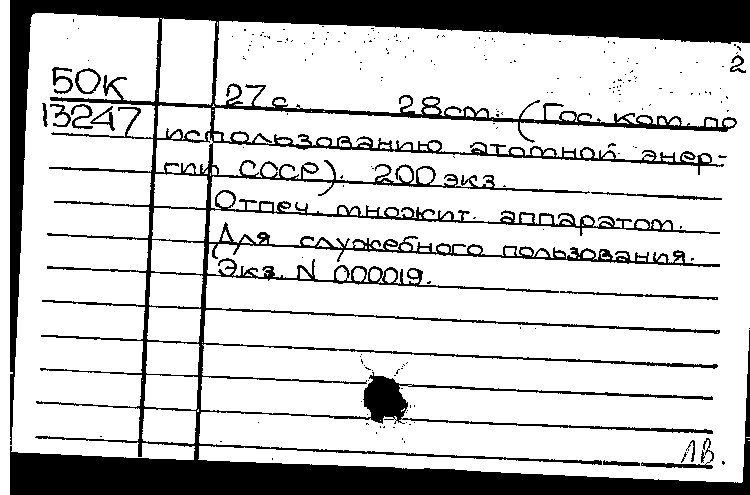 2
50К 27 с. 28 см. (Гос. ком. по
13247 использованию атомной энер-
гии СССР). 200 экз.
Отпеч. множит. аппаратом.
Для служебного пользования.
Экз. N 000019.
ЛВ.